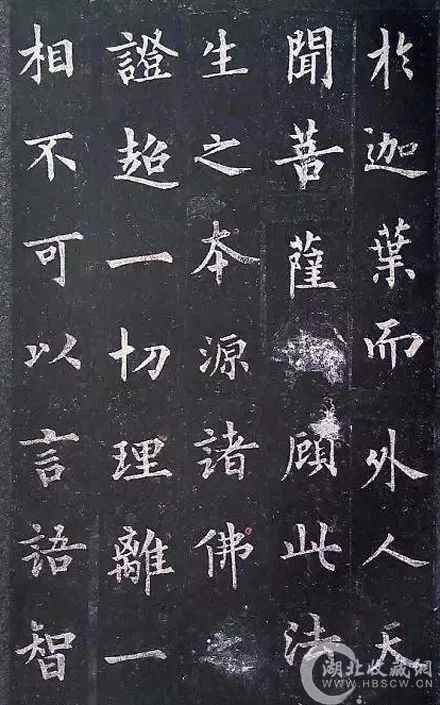 於迦葉而外人天
聞菩薩顧此法
生之本源諸佛之
證超一切理離一
相不可以言語智
湖北收藏網
WWW.HBSCW.CN